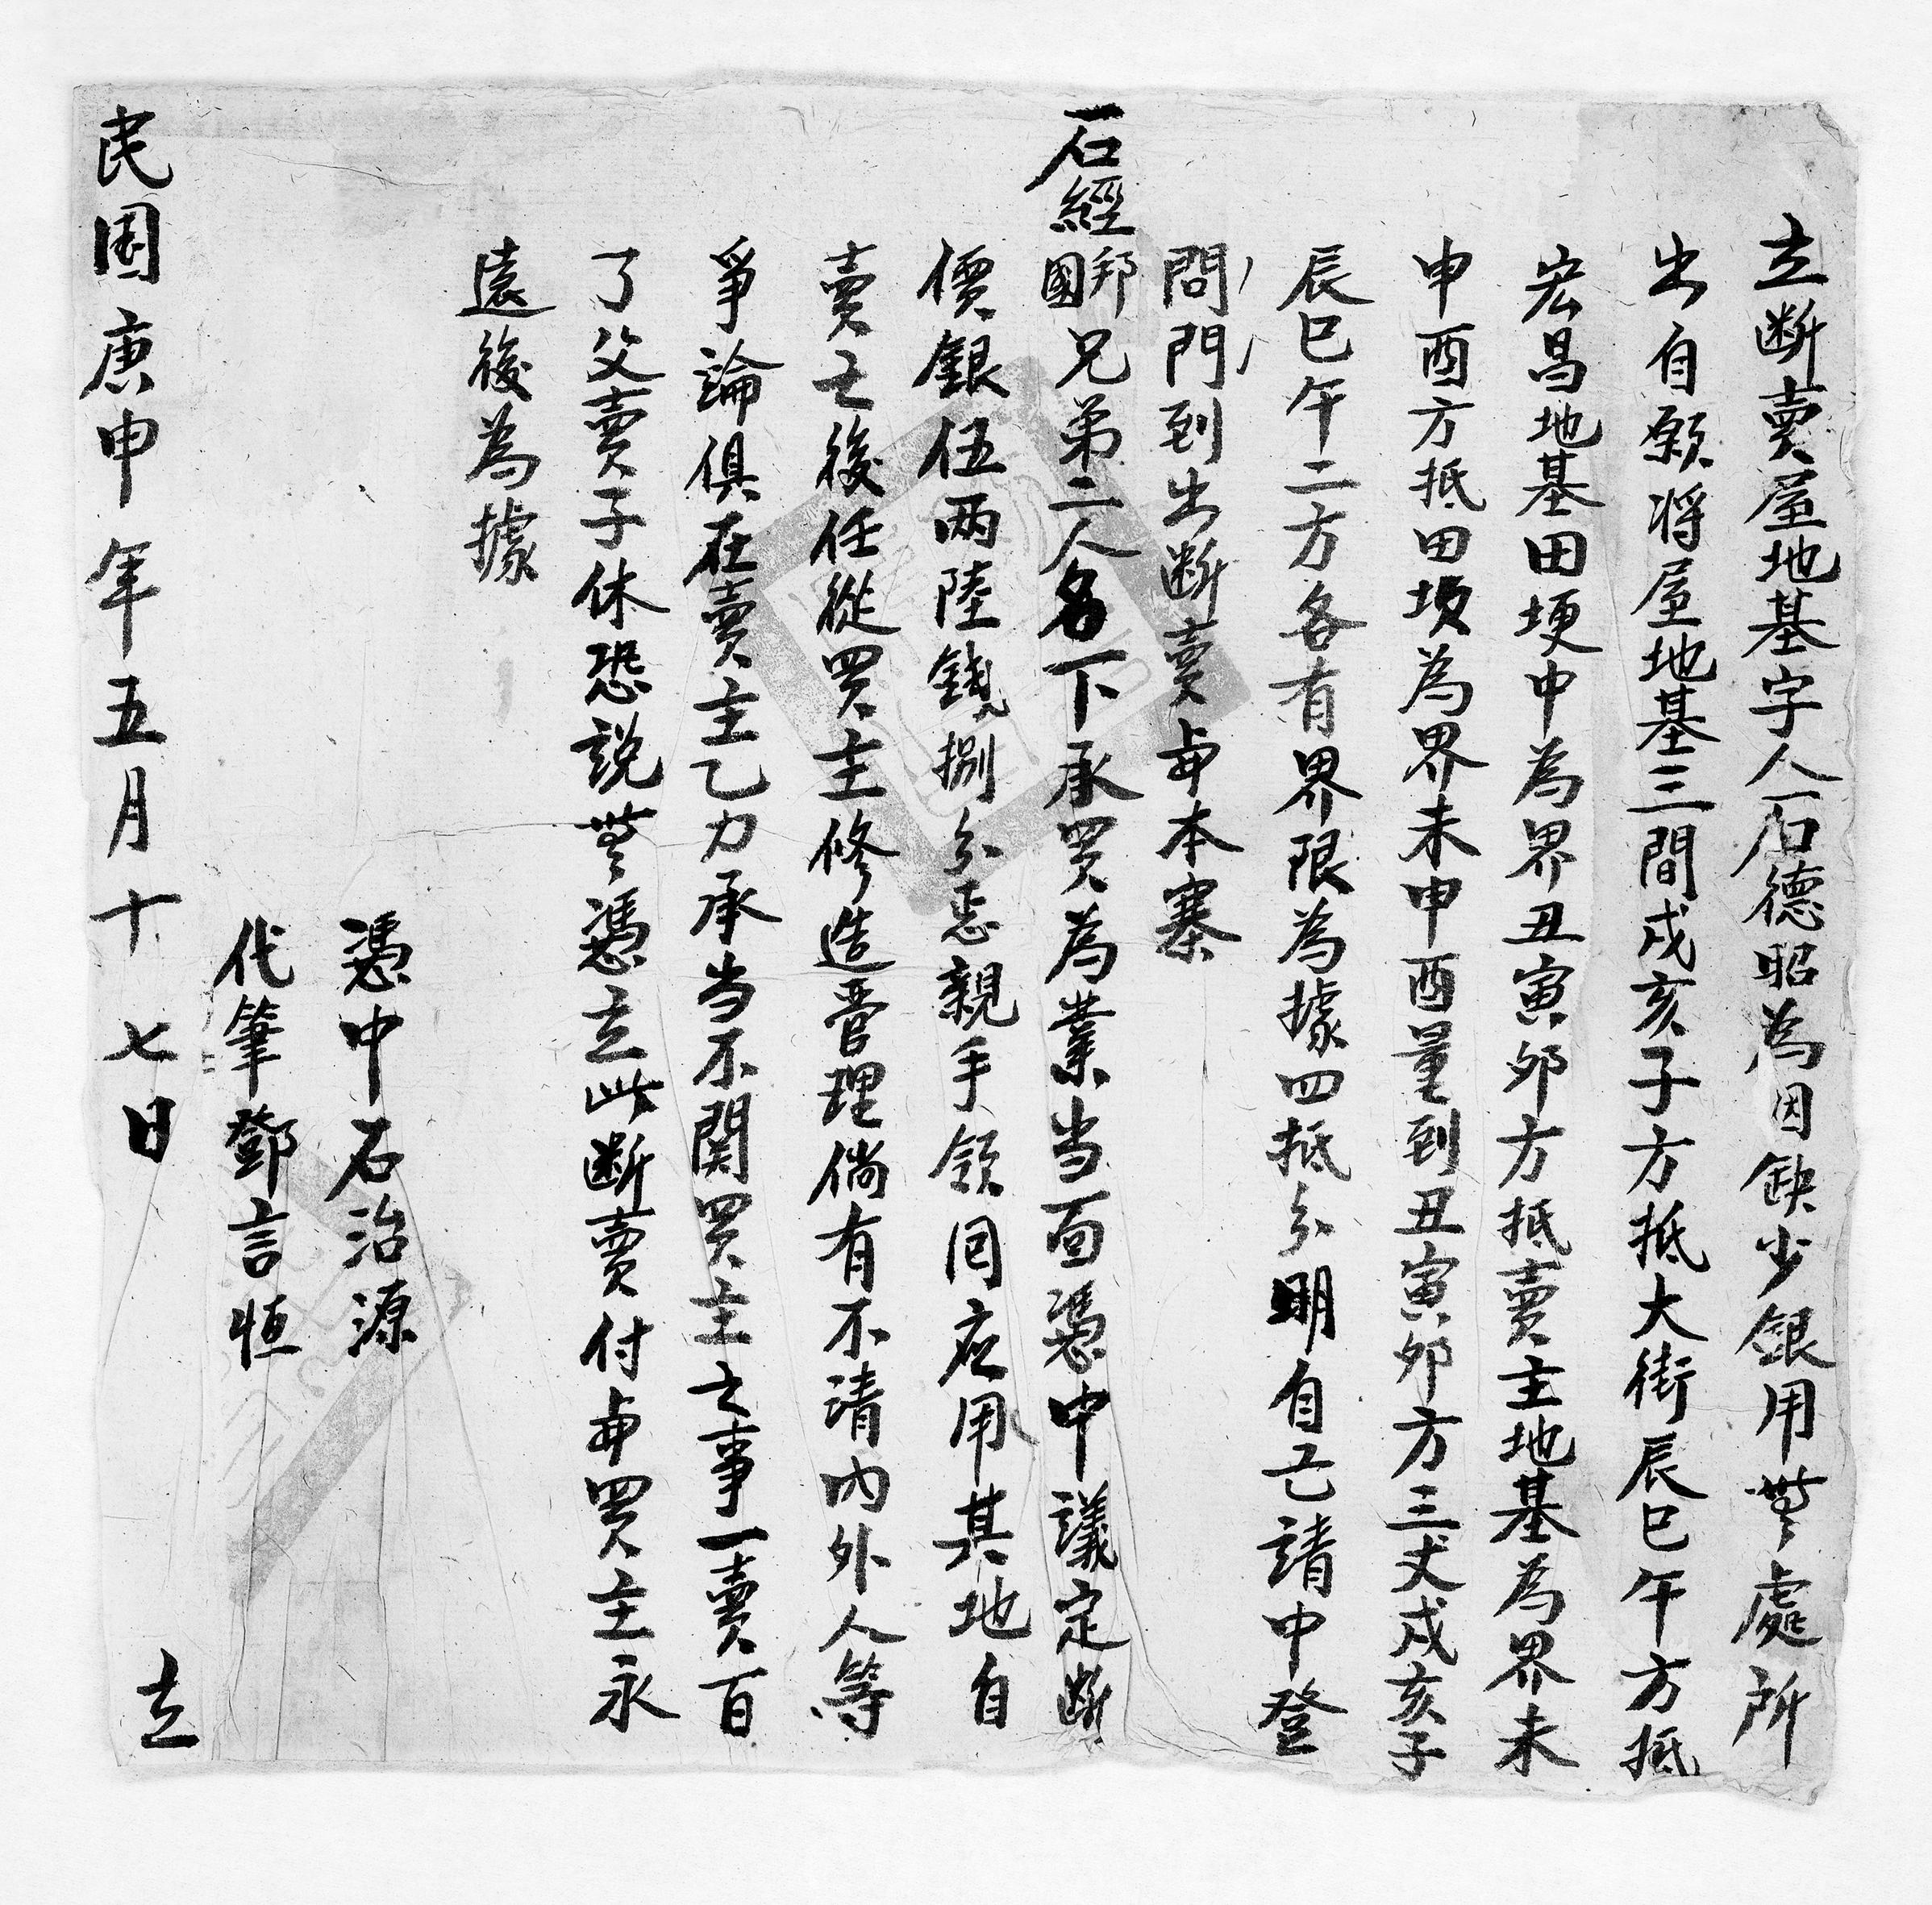 立断賣屋地基字人石德昭為因缺少銀用無處所
出自願将屋地基三間戌亥子方抵大街辰巳午方抵
宏昌地基田埂中為界丑寅卯方抵賣主地基為界未
申酉方抵田埂為界未申酉量到丑寅卯方三丈戌亥子
辰巳午二方各有界限為據四抵分明自己請中登
問門到出断賣與本寨
石經邦國兄弟二人名下承買為業当面憑中議定断
價銀伍両陸錢捌分恁親手領囘應用其地自
賣之後任從買主修造管理倘有不清内外人等
爭論俱在賣主乙力承当不関買主之事一賣百
了父賣子休恐説無憑立此断賣付與買主永
遠後為據
憑中石治源
代筆鄧言恒
民国庚申年五月十七日 立